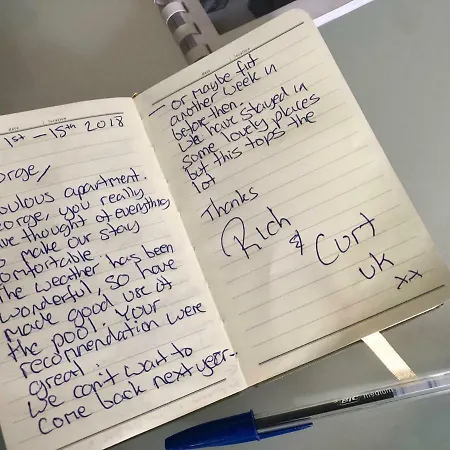 1st - 15th 2018
orge,
bulous apartment.
eorge, you really
ve thought of everything
o make our stay
omfortable.
The weather has been
wonderful, so have
made good use of
the pool. Your
recommendation were
great.
We can't wait to
come back next year-
- or maybe fit
another week in
before then.
We have stayed in
some lovely places
but this tops the
lot
Thanks
Rich
& Curt
UK
xx
BIC medium